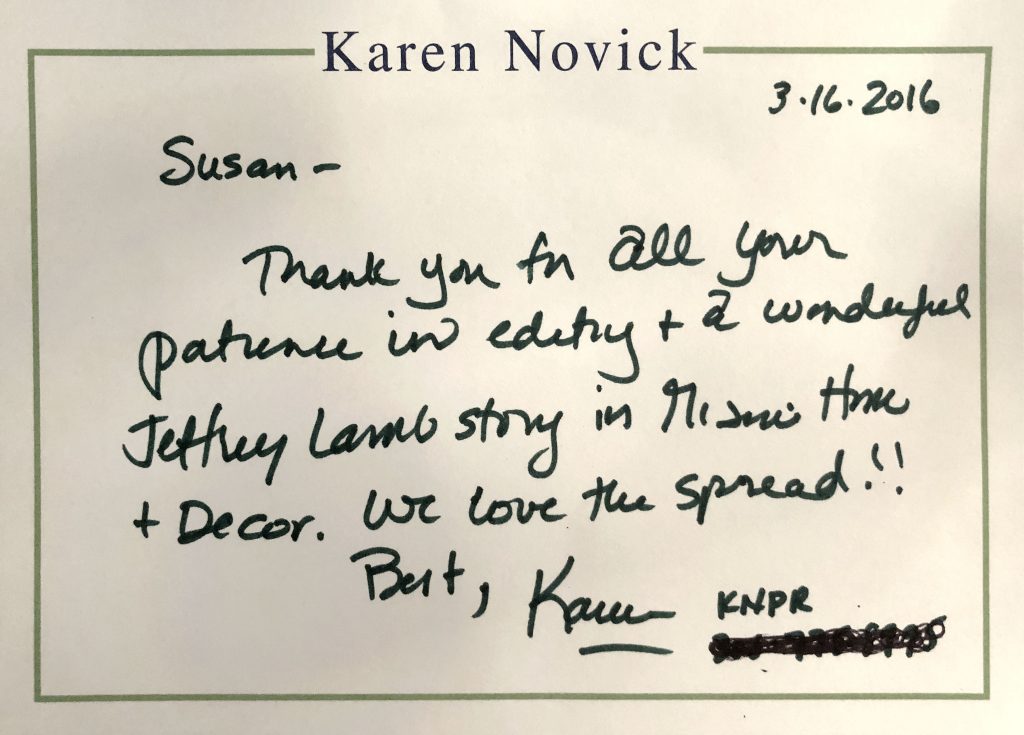 Karen Novick
3.16.2016
Susan-
Thank you for all your
patience in editing + a wonderful
Jeffrey Lamb story in Miami Home
+ Decor. We love the spread!!
Best, Karen KNPR